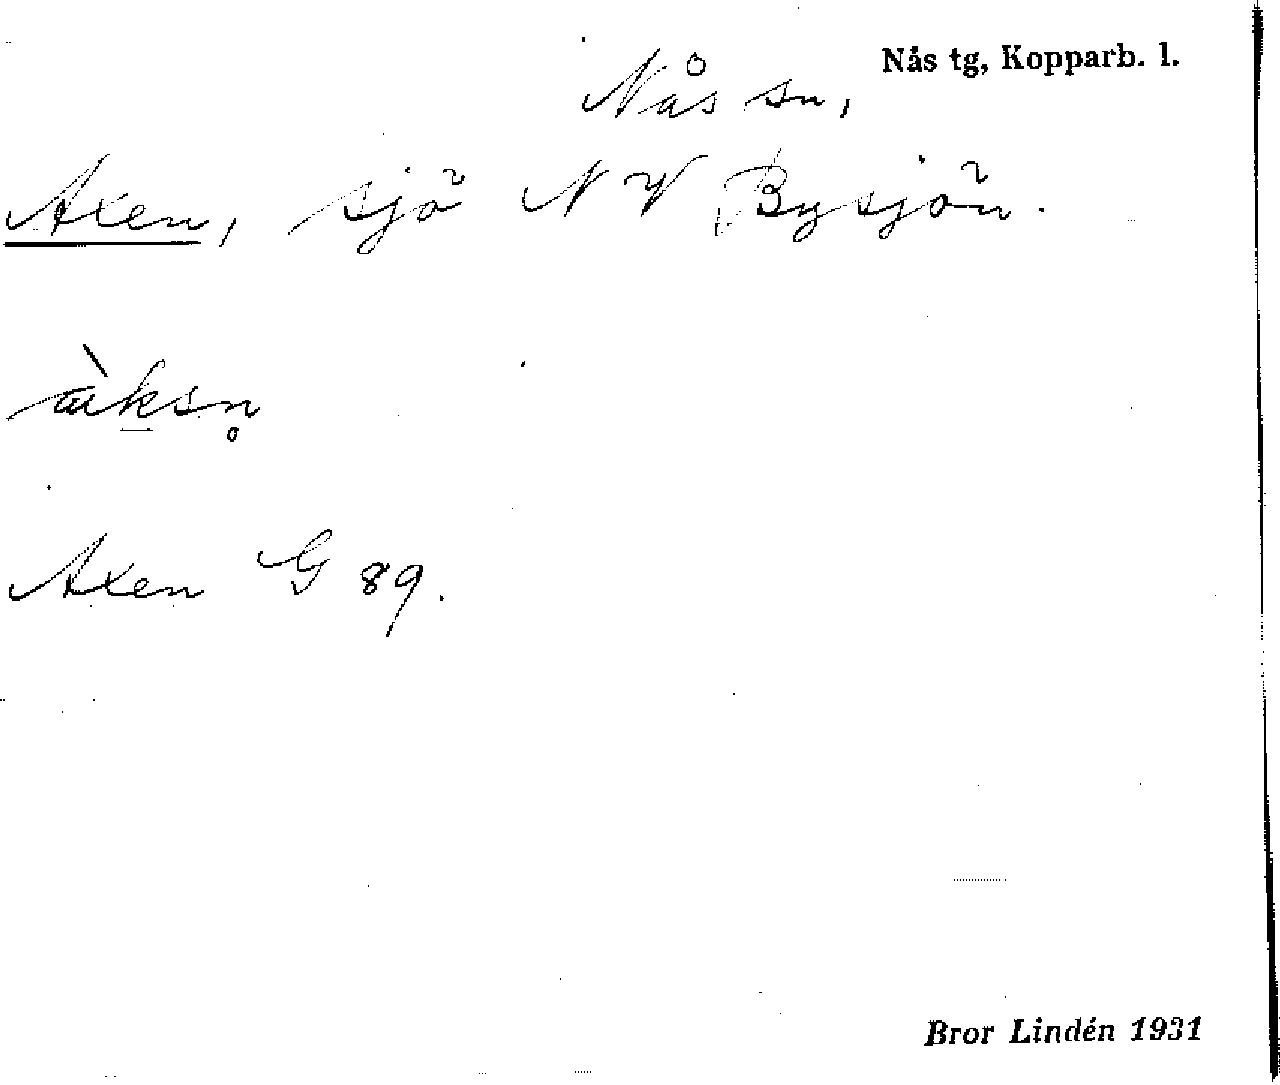 Nås tg, Kopparb. l.
Nås sn,
Axen, sjö N V Bysjön.
àksn̥
Axen G 89.
Bror Lindén 1931